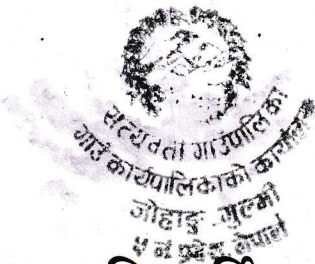 सत्यवती गाउँपालिका
गाउँ कार्यपालिकाको कार्यालय
जोहाङ्ग गुल्मी
५ नं प्रदेश, नेपाल